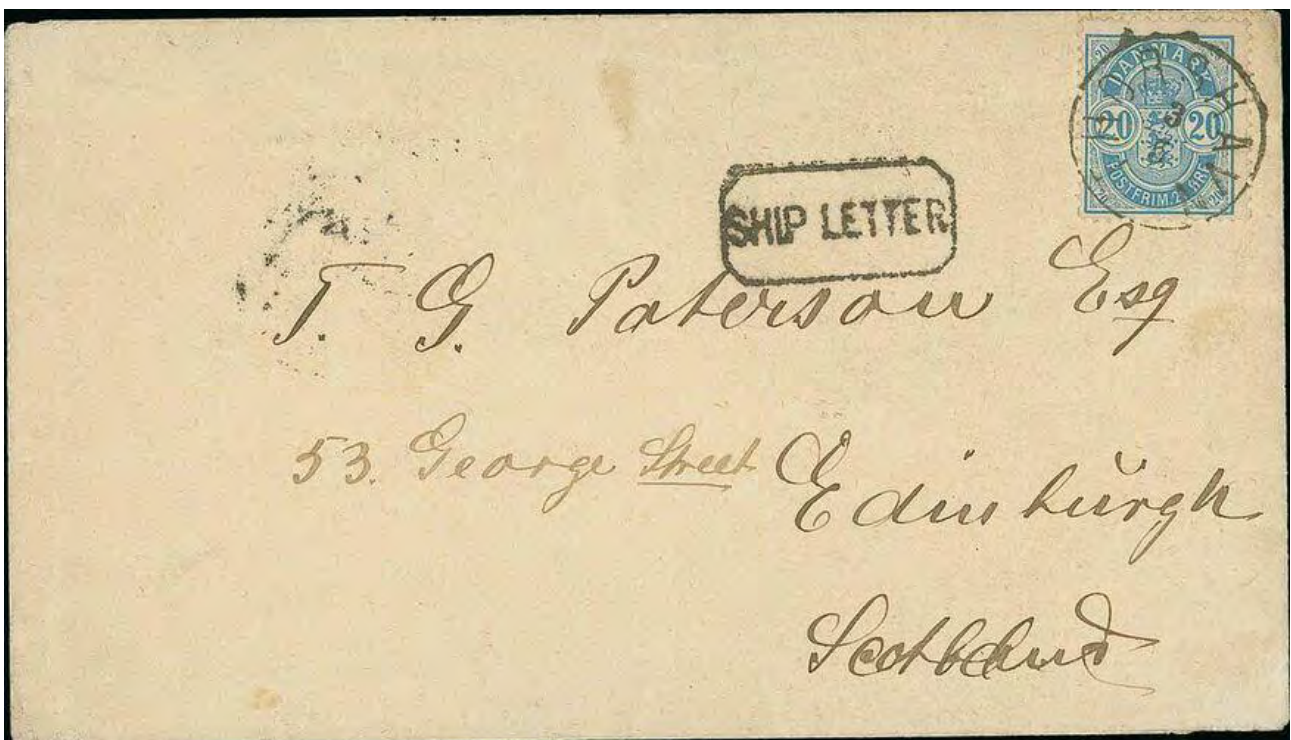 DANMARK
20 20
POSTFRIM. 20 ØRE
THORSHAVN
3
SHIP LETTER
T. G. Paterson Esq
53. George Street
Edinburgh
Scotland